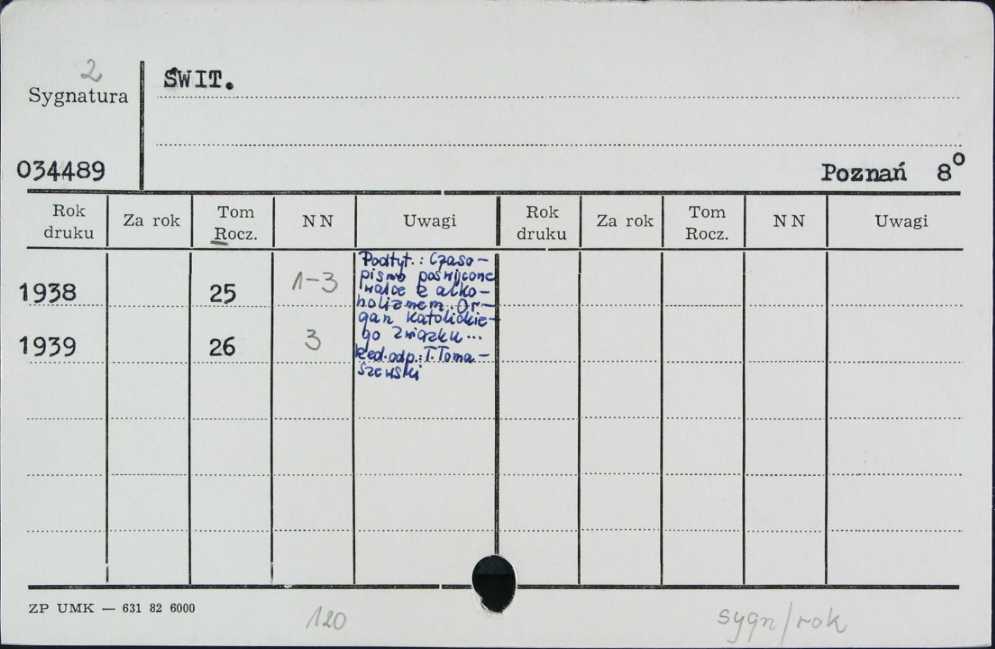 2
Sygnatura
ŚWIT.
034489
Poznań 8°
Rok druku Za rok Tom Rocz. NN Uwagi Rok druku Za rok Tom Rocz. NN Uwagi
1938 25 1-3
1939 26 3
Podtyt.: Czaso-
pismo poświęcone
walce z alko-
holizmem. Or-
gan Katolickie-
go Związku...
Red.odp.: T. Toma-
szewski
ZP UMK — 631 82 6000
120
sygn/rok